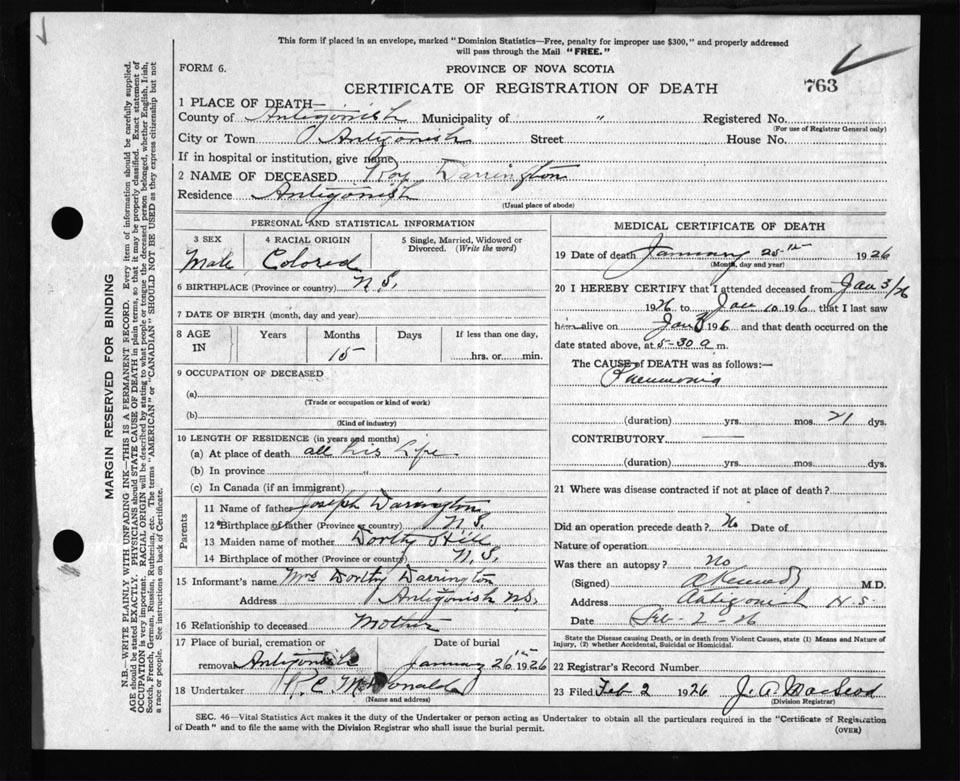 This form if placed in an envelope, marked "Dominion Statistics—Free, penalty for improper use $300," and properly addressed
will pass through the Mail "FREE."
FORM 6.
PROVINCE OF NOVA SCOTIA
763
CERTIFICATE OF REGISTRATION OF DEATH
1 PLACE OF DEATH—
County of Antigonish Municipality of " Registered No.
(For use of Registrar General only)
City or Town Antigonish Street House No.
If in hospital or institution, give name
2 NAME OF DECEASED Roy Darrington
Residence Antigonish
(Usual place of abode)
PERSONAL AND STATISTICAL INFORMATION
3 SEX 4 RACIAL ORIGIN 5 Single, Married, Widowed or
Divorced. (Write the word)
Male Colored
6 BIRTHPLACE (Province or country) N.S.
7 DATE OF BIRTH (month, day and year)
8 AGE IN Years Months Days If less than one day,
15 hrs. or min.
9 OCCUPATION OF DECEASED
(a)
(Trade or occupation or kind of work)
(b)
(Kind of industry)
10 LENGTH OF RESIDENCE (in years and months)
(a) At place of death all his life
(b) In province "
(c) In Canada (if an immigrant)
Parents
11 Name of father Joseph Darrington
12 Birthplace of father (Province or country) N.S.
13 Maiden name of mother Dorthy Hill
14 Birthplace of mother (Province or country) N.S.
15 Informant's name Mrs Dorthy Darrington
Address Antigonish N.S.
16 Relationship to deceased Mother
17 Place of burial, cremation or Date of burial
removal Antigonish January 26th 1926
18 Undertaker R.C. McDonald
(Name and address)
MEDICAL CERTIFICATE OF DEATH
19 Date of death January 25th 1926
(Month, day and year)
20 I HEREBY CERTIFY that I attended deceased from Jan 3/26
1926 to Jan 10 1926 that I last saw
him alive on Jan 1926 and that death occurred on the
date stated above, at 5-30 a m.
The CAUSE of DEATH was as follows:—
Pneumonia
(duration) yrs. mos. 21 dys.
CONTRIBUTORY —
(duration) yrs. mos. dys.
21 Where was disease contracted if not at place of death?
Did an operation precede death? No Date of
Nature of operation
Was there an autopsy? no
(Signed) M.D.
Address Antigonish N.S.
Date Feb-2-26
State the Disease causing Death, or in death from Violent Causes, state (1) Means and Nature of
Injury, (2) whether Accidental, Suicidal or Homicidal.
22 Registrar's Record Number
23 Filed Feb 2 1926 J. A. MacLeod
(Division Registrar)
SEC. 46—Vital Statistics Act makes it the duty of the Undertaker or person acting as Undertaker to obtain all the particulars required in the "Certificate of Registration
of Death" and to file the same with the Division Registrar who shall issue the burial permit.
(OVER)
MARGIN RESERVED FOR BINDING
N.B.—WRITE PLAINLY WITH UNFADING INK—THIS IS A PERMANENT RECORD. Every item of information should be carefully supplied.
AGE should be stated EXACTLY. PHYSICIANS should STATE CAUSE OF DEATH in plain terms, so that it may be properly classified. Exact statement of
OCCUPATION is very important. RACIAL ORIGIN will be described by stating to what people or tongue the deceased person belonged, whether English, Irish,
Scotch, French, German, Russian, Ruthenian, etc. The terms "AMERICAN" or "CANADIAN" SHOULD NOT BE USED as they express citizenship but not
a race or people. See instructions on back of Certificate.